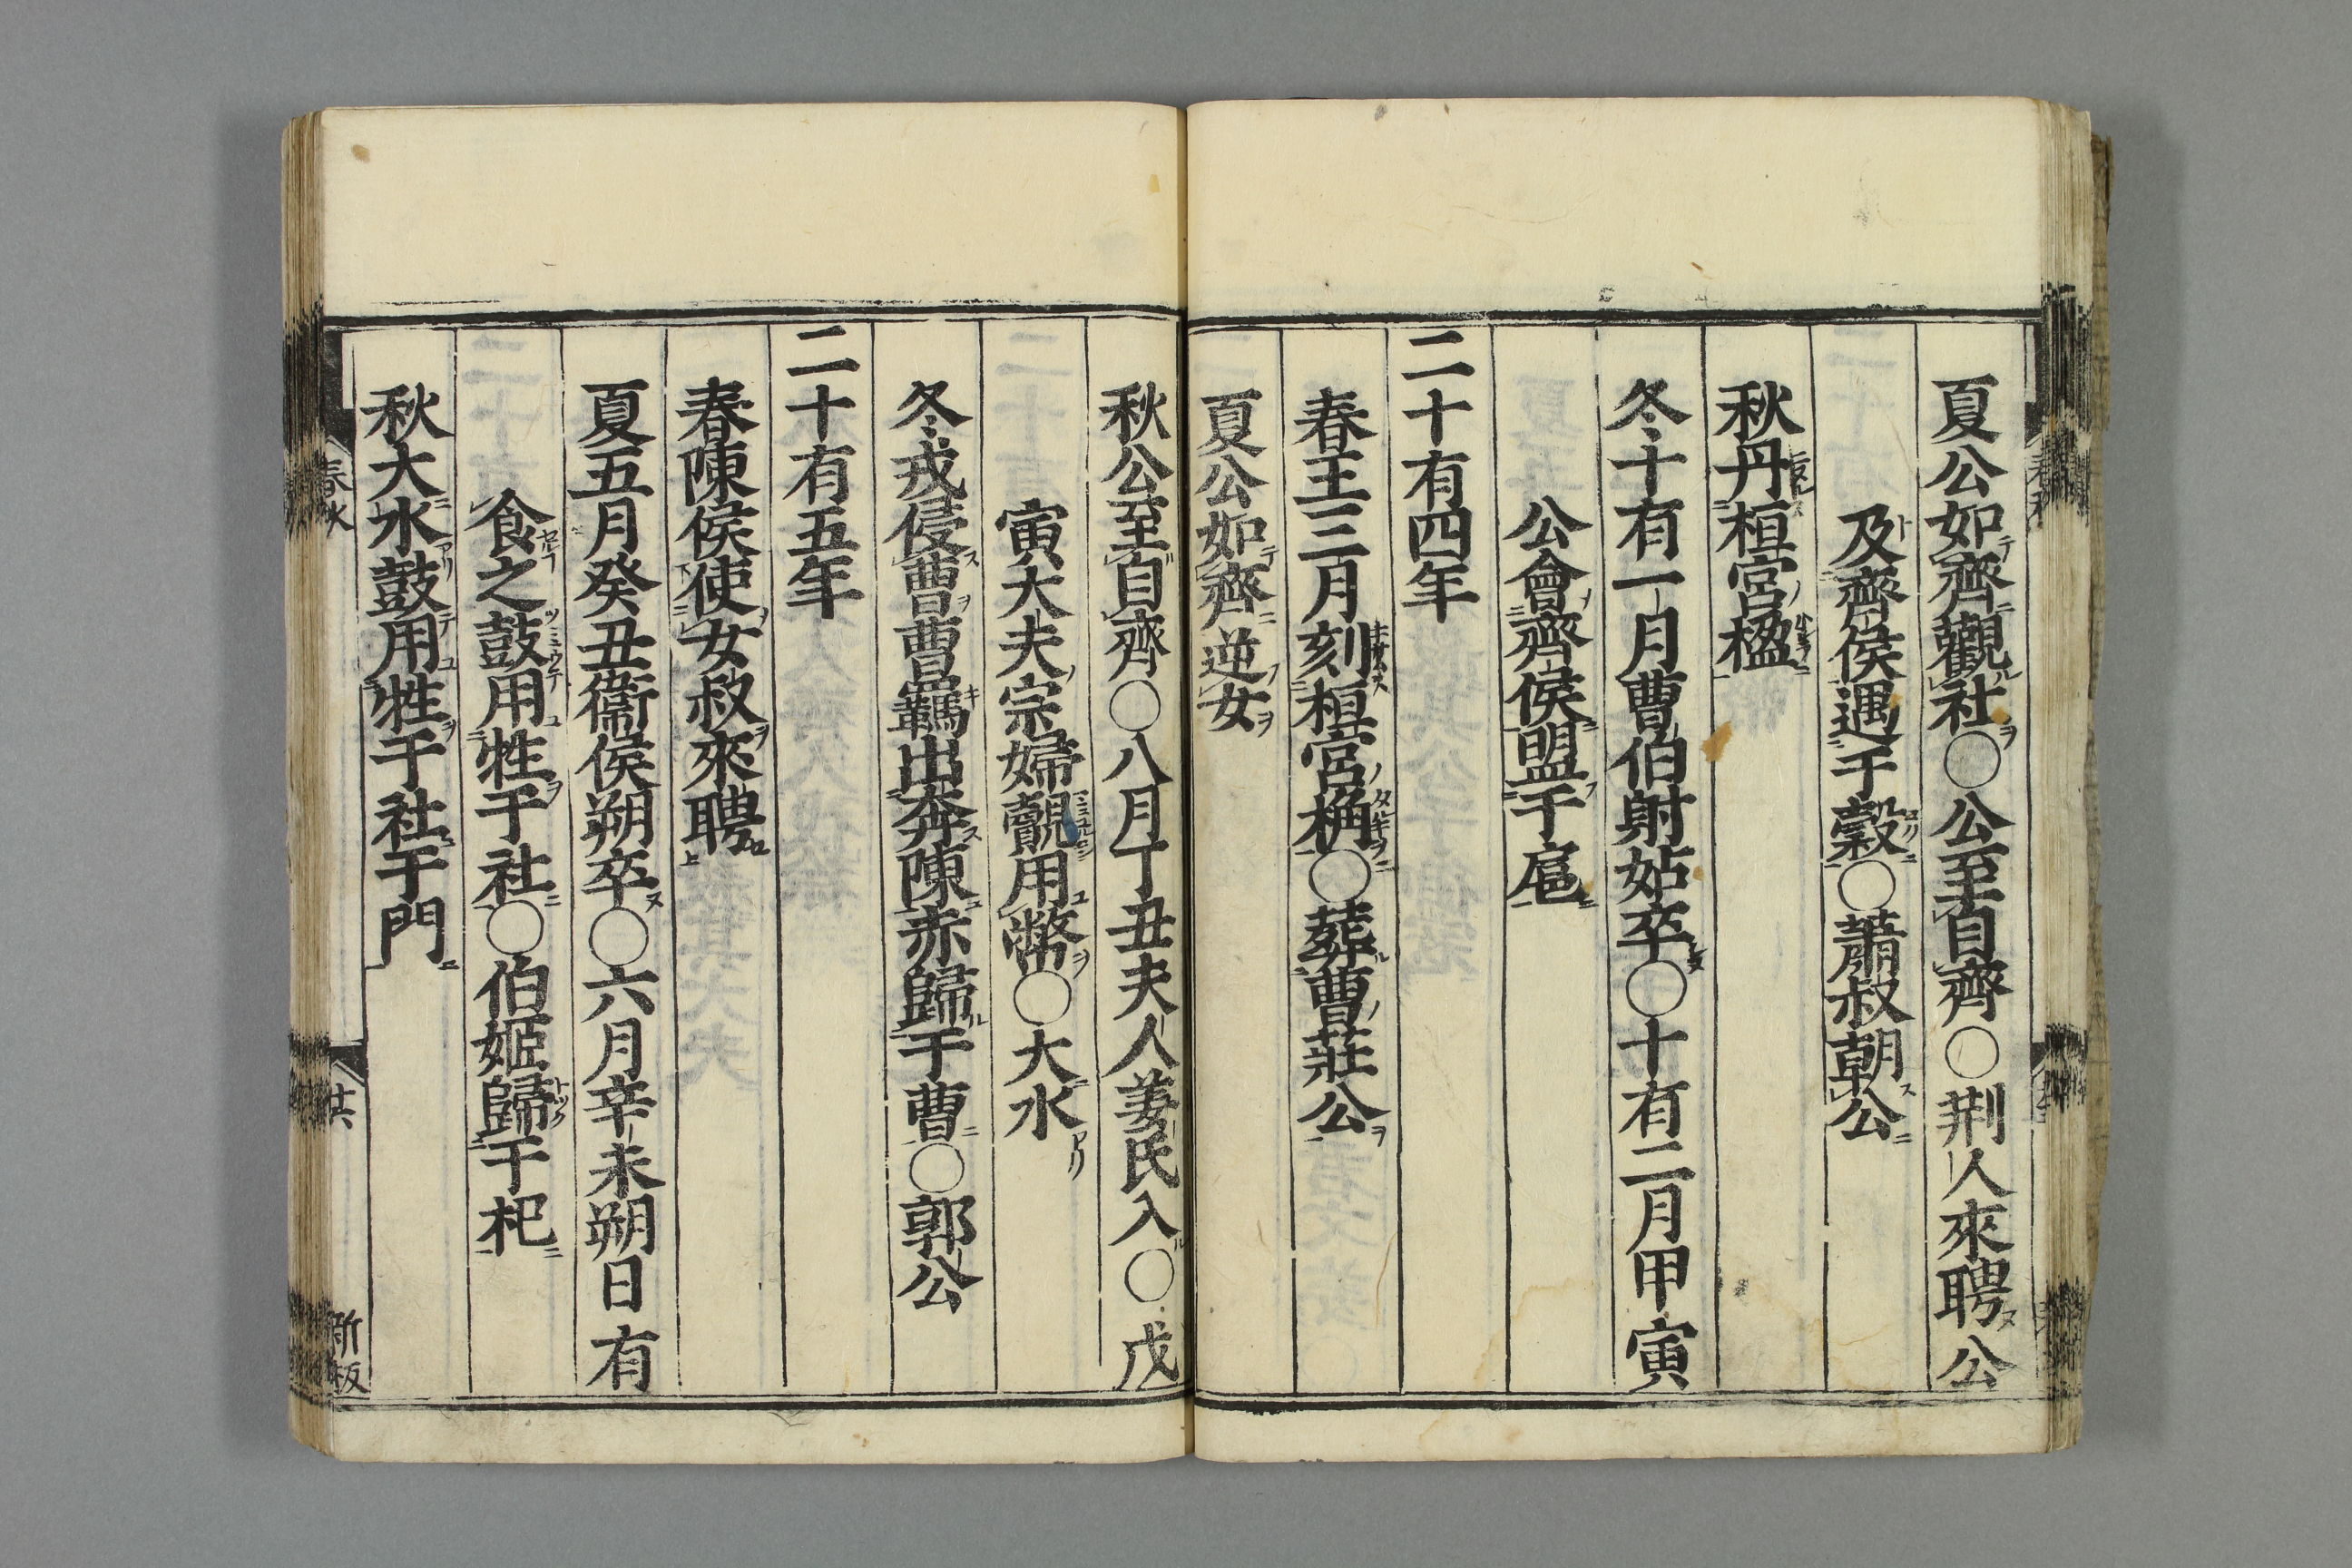 夏公如齊觀社○公至自齊○荆人來聘公
及齊侯遇于穀○蕭叔朝公
秋丹桓宮楹
冬十有一月曹伯射姑卒○十有二月甲寅
公會齊侯盟于扈
二十有四年
春王三月刻桓宮桷○葬曹莊公
夏公如齊逆女
秋公至自齊○八月丁丑夫人姜氏入○戊
寅大夫宗婦覿用幣○大水
冬戎侵曹曹羈出奔陳赤歸于曹○郭公
二十有五年
春陳侯使女叔來聘
夏五月癸丑衞侯朔卒○六月辛未朔日有
食之鼓用牲于社○伯姬歸于杞
秋大水鼓用牲于社于門
春秋
廿六
新板